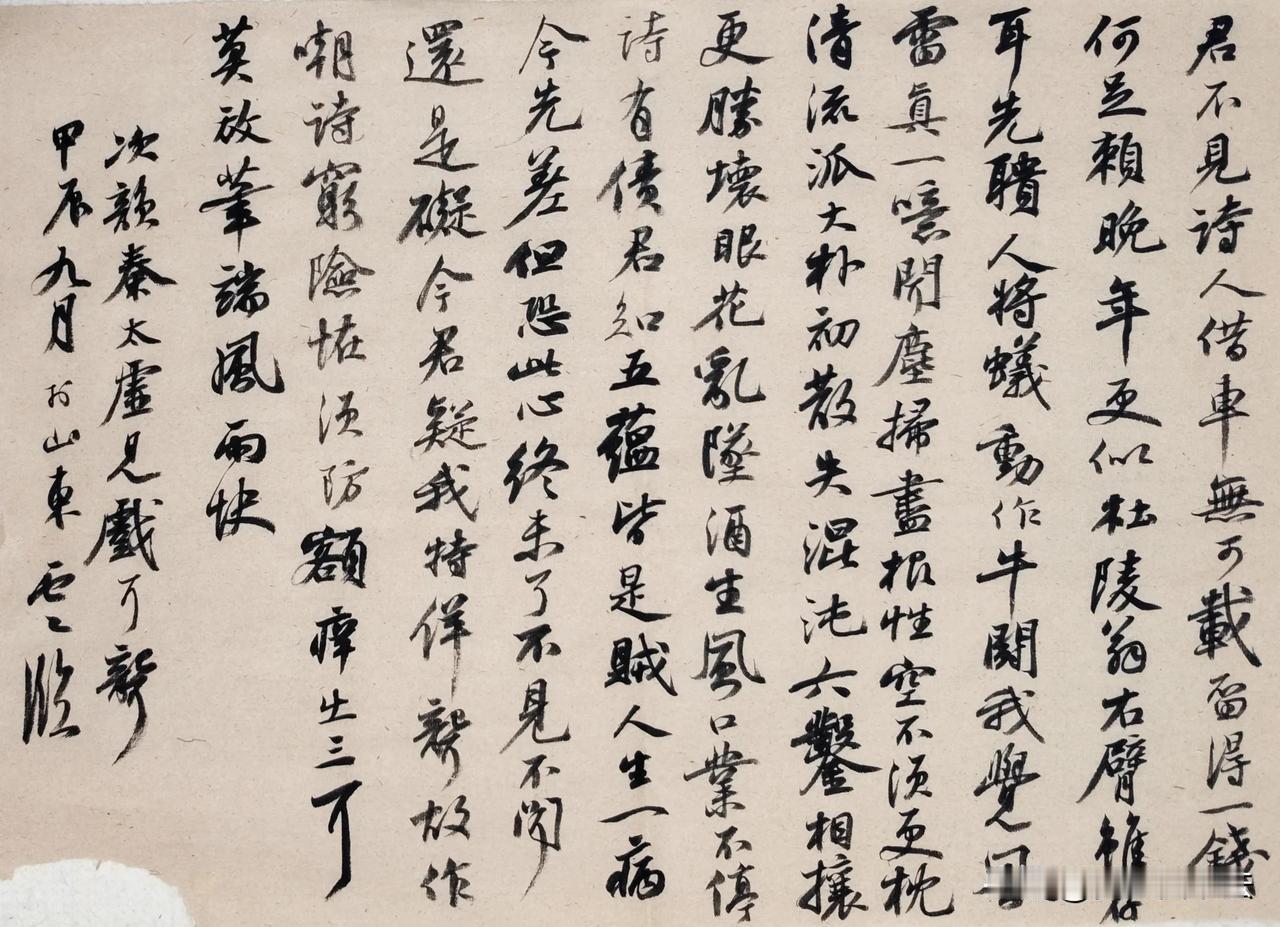 君不見詩人借車無可載留得一錢
何足賴晚年更似杜陵翁右臂雖存
耳先聵人將蟻動作牛鬭我覺風
雷真一噫聞塵掃盡根性空不須更枕
清流派大朴初散失混沌六鑿相攘
更勝壞眼花亂墜酒生風口業不停
詩有債君知五蘊皆是賊人生一病
今先差但恐此心終未了不見不聞
還是礙今君疑我特佯聾故作
嘲詩窮險怪須防額癢出三耳
莫放筆端風雨快
次韻秦太虛見戲耳聾
甲辰九月於山東臨